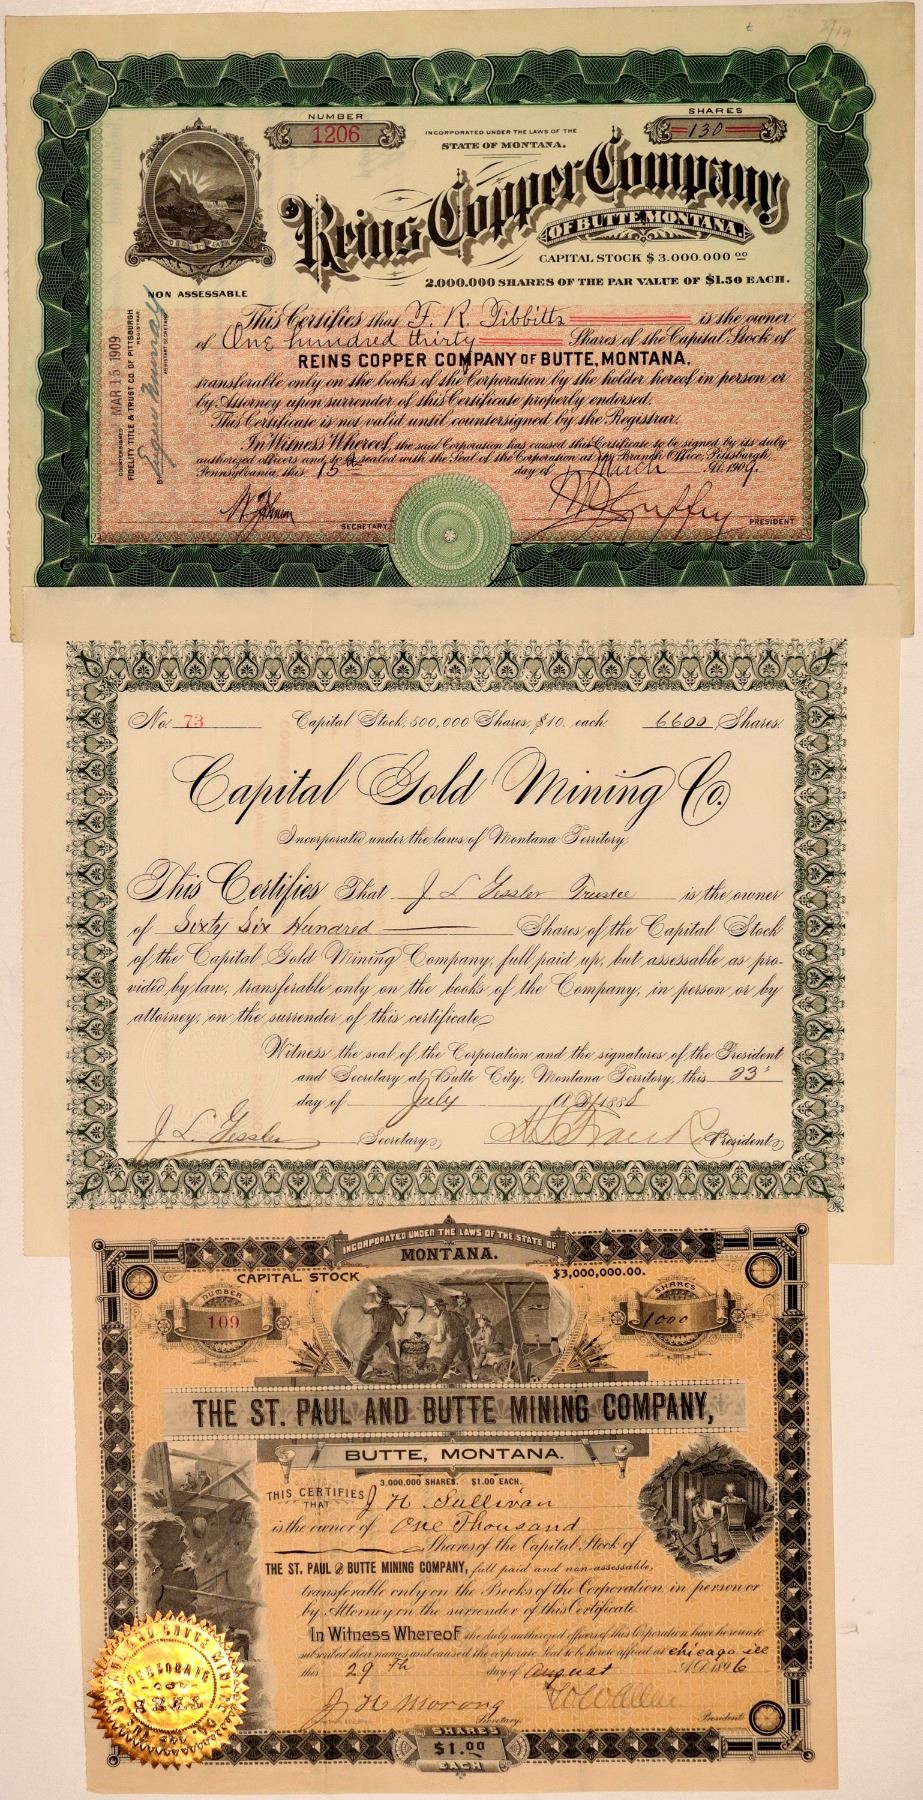 NUMBER
1206
INCORPORATED UNDER THE LAWS OF THE
STATE OF MONTANA.
SHARES
130
Reins Copper Company
OF BUTTE, MONTANA.
CAPITAL STOCK $3.000.000 00
2,000,000 SHARES OF THE PAR VALUE OF $1.50 EACH.
NON ASSESSABLE
COUNTERSIGNED MAR 15 1909
FIDELITY TITLE & TRUST CO. OF PITTSBURGH
REGISTRAR
ASSISTANT SECRETARY
This Certifies that F. R. Tibbitts is the owner
of One hundred thirty Shares of the Capital Stock of
REINS COPPER COMPANY OF BUTTE, MONTANA.
transferable only on the books of the Corporation by the holder hereof in person or
by Attorney upon surrender of this Certificate properly endorsed.
This Certificate is not valid until countersigned by the Registrar.
In Witness Whereof, the said Corporation has caused this Certificate to be signed by its duly
authorized officers and to be sealed with the Seal of the Corporation at its Branch Office, Pittsburgh,
Pennsylvania, this 15th day of March A.D. 1909.
SECRETARY
PRESIDENT
No. 73 Capital Stock, 500,000 Shares, $10. each. 6600 Shares.
Capital Gold Mining Co.
Incorporated under the laws of Montana Territory.
This Certifies That J. L. Gissler Trustee is the owner
of Sixty Six Hundred Shares of the Capital Stock
of the Capital Gold Mining Company, full paid up, but assessable as pro-
vided by law, transferable only on the books of the Company, in person or by
attorney, on the surrender of this certificate
Witness the seal of the Corporation and the signatures of the President
and Secretary at Butte City, Montana Territory, this 23d
day of July A.D. 1888
J. L. Gissler Secretary President
INCORPORATED UNDER THE LAWS OF THE STATE OF
MONTANA.
CAPITAL STOCK $3,000,000.00.
NUMBER
109
SHARES
1000
THE ST. PAUL AND BUTTE MINING COMPANY,
BUTTE, MONTANA.
3,000,000 SHARES. $1.00 EACH.
THIS CERTIFIES THAT J H Sullivan
is the owner of One Thousand
Shares of the Capital Stock of
THE ST. PAUL AND BUTTE MINING COMPANY, full paid and non-assessable,
transferable only on the Books of the Corporation in person or
by Attorney on the surrender of this Certificate.
In Witness Whereof the duly authorized officers of this Corporation have hereunto
subscribed their names and caused the corporate Seal to be hereto affixed at Chicago Ill
this 29th day of August A.D. 1896
J H Morong Secretary. President.
SHARES
$1.00
EACH